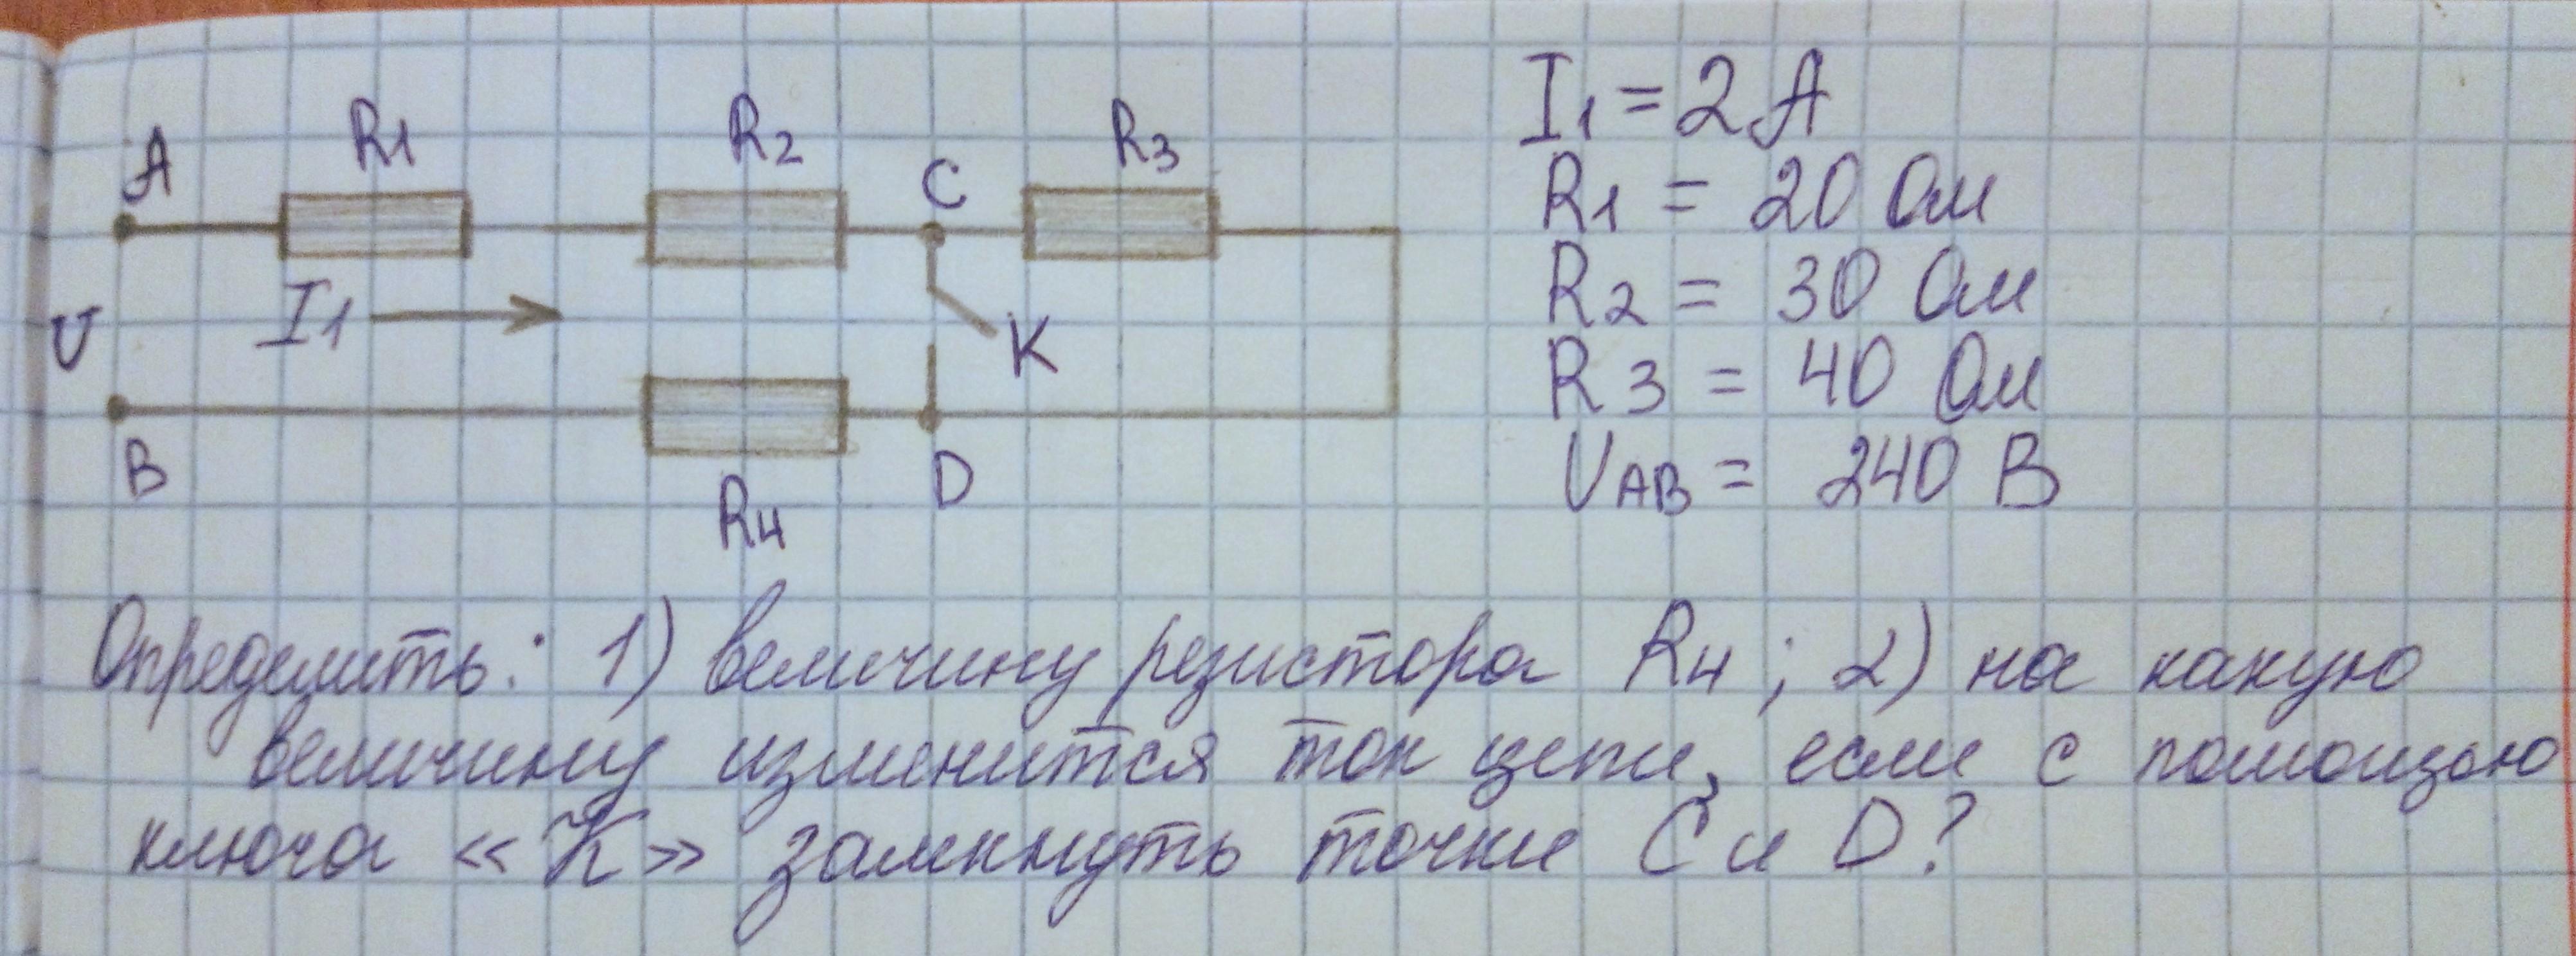 A
R1
R2
C
R3
U
I1
K
B
R4
D
I1 = 2 A
R1 = 20 Ом
R2 = 30 Ом
R3 = 40 Ом
UAB = 240 В
Определить: 1) величину резистора R4; 2) на какую
величину изменится ток цепи, если с помощью
ключа «К» замкнуть точки C и D?